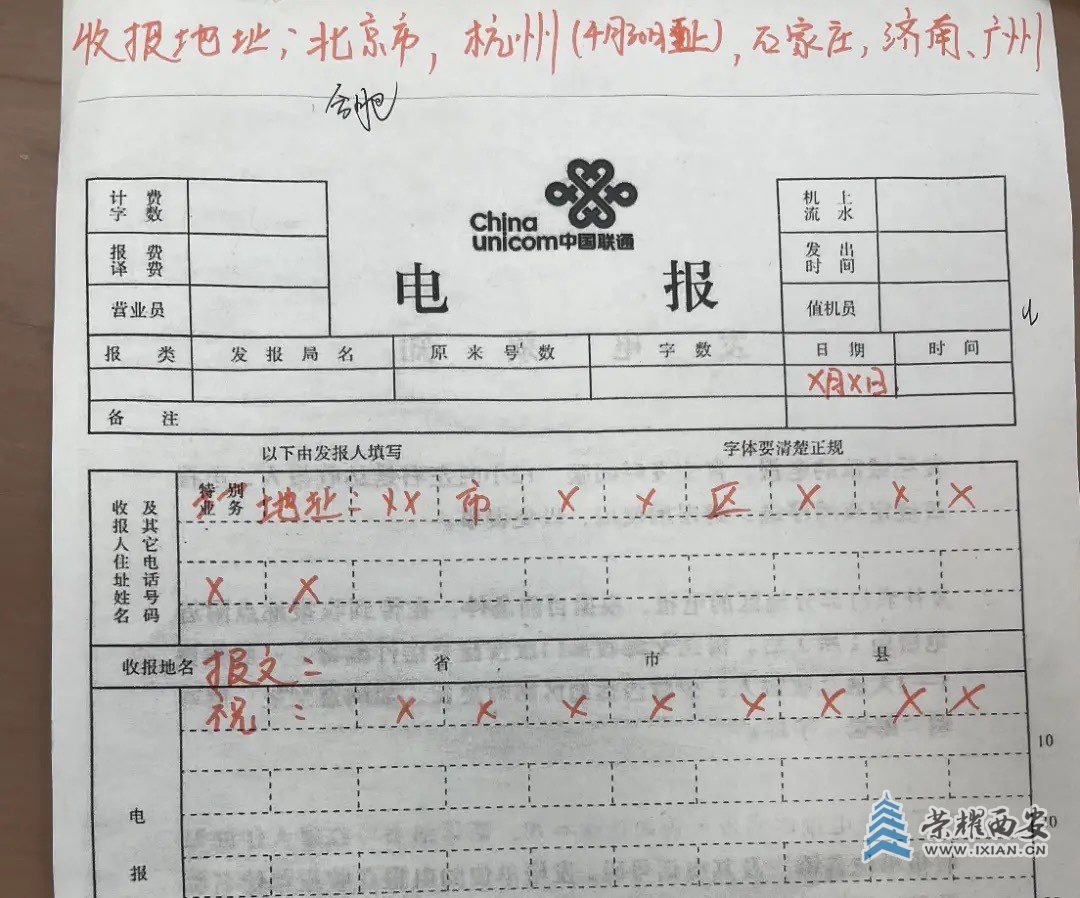 收报地址：北京市，杭州（4月30日截止），石家庄，济南、广州
合肥
China
unicom中国联通
电 报
计费字数
报费译费
营业员
机上流水
发出时间
值机员
报类 发报局名 原来号数 字数 日期 时间
X月X日
备注
以下由发报人填写 字体要清楚正规
收报人住址姓名及其它电话号码
特别业务
地址：XX市XX区XXX
XX
收报地名 省 市 县
报文：
祝：XXXXXXXX
10
20
电报
荣耀西安
WWW.IXIAN.CN